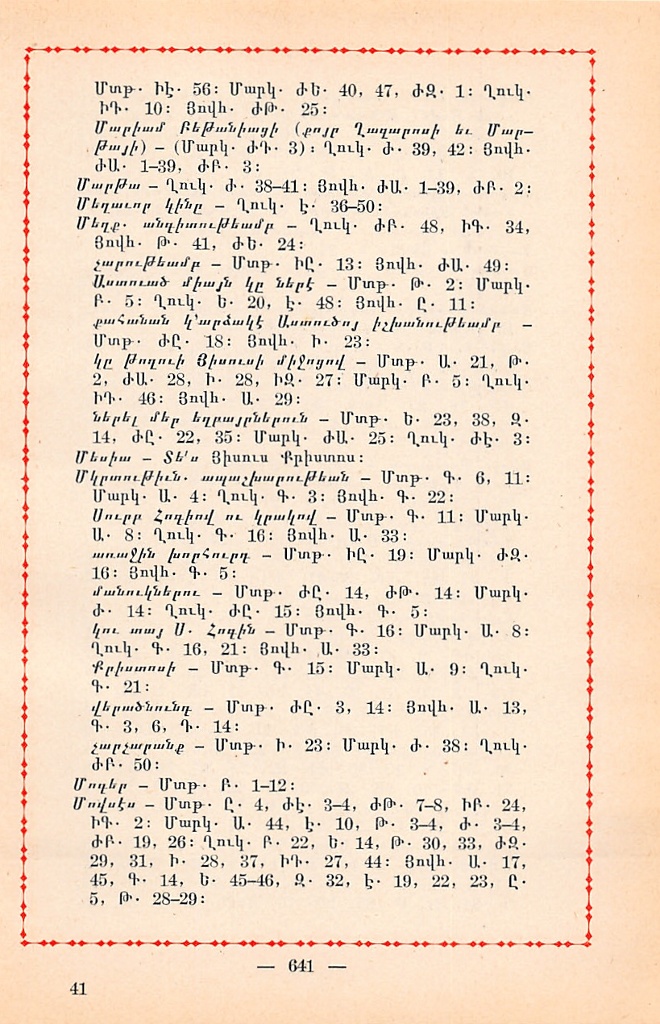 Մտթ․ ԻԷ․ 56: Մարկ․ ԺԵ․ 40, 47, ԺԶ․ 1: Ղուկ․
ԻԴ․ 10: Յովհ․ ԺԹ․ 25:
Մարիամ Բեթանիացի (քոյր Ղազարոսի եւ Մար–
թայի) – (Մարկ․ ԺԴ․ 3): Ղուկ․ Ժ․ 39, 42: Յովհ․
ԺԱ․ 1–39, ԺԲ․ 3:
Մարթա – Ղուկ․ Ժ․ 38–41: Յովհ․ ԺԱ․ 1–39, ԺԲ․ 2:
Մեղաւոր կինը – Ղուկ․ Է․ 36–50:
Մեղք․ անգիտութեամբ – Ղուկ․ ԺԲ․ 48, ԻԳ․ 34,
Յովհ․ Թ․ 41, ԺԵ․ 24:
չարութեամբ – Մտթ․ ԻԸ․ 13: Յովհ․ ԺԱ․ 49:
Աստուած միայն կը ներէ – Մտթ․ Թ․ 2: Մարկ․
Բ․ 5: Ղուկ․ Ե․ 20, Է․ 48: Յովհ․ Ը․ 11:
քահանան կ՚արձակէ Աստուծոյ իշխանութեամբ –
Մտթ․ ԺԸ․ 18: Յովհ․ Ի․ 23:
կը թողուի Յիսուսի միջոցով – Մտթ․ Ա․ 21, Թ․
2, ԺԱ․ 28, Ի․ 28, ԻԶ․ 27: Մարկ․ Բ․ 5: Ղուկ․
ԻԴ․ 46: Յովհ․ Ա․ 29:
ներել մեր եղբայրներուն – Մտթ․ Ե․ 23, 38, Զ․
14, ԺԸ․ 22, 35: Մարկ․ ԺԱ․ 25: Ղուկ․ ԺԷ․ 3:
Մեսիա – Տե՛ս Յիսուս Քրիստոս:
Մկրտութիւն․ ապաշխարութեան – Մտթ․ Գ․ 6, 11:
Մարկ․ Ա․ 4: Ղուկ․ Գ․ 3: Յովհ․ Գ․ 22:
Սուրբ Հոգիով ու կրակով – Մտթ․ Գ․ 11: Մարկ․
Ա․ 8: Ղուկ․ Գ․ 16: Յովհ․ Ա․ 33:
առաջին խորհուրդ – Մտթ․ ԻԸ․ 19: Մարկ․ ԺԶ․
16: Յովհ․ Գ․ 5:
մանուկներու – Մտթ․ ԺԸ․ 14, ԺԹ․ 14: Մարկ․
Ժ․ 14: Ղուկ․ ԺԸ․ 15: Յովհ․ Գ․ 5:
կու տայ Ս․ Հոգին – Մտթ․ Գ․ 16: Մարկ․ Ա․ 8:
Ղուկ․ Գ․ 16, 21: Յովհ․ Ա․ 33:
Քրիստոսի – Մտթ․ Գ․ 15: Մարկ․ Ա․ 9: Ղուկ․
Գ․ 21:
վերածնունդ – Մտթ․ ԺԸ․ 3, 14: Յովհ․ Ա․ 13,
Գ․ 3, 6, Գ․ 14:
չարչարանք – Մտթ․ Ի․ 23: Մարկ․ Ժ․ 38: Ղուկ․
ԺԲ․ 50:
Մոգեր – Մտթ․ Բ․ 1–12:
Մովսէս – Մտթ․ Ը․ 4, ԺԷ․ 3–4, ԺԹ․ 7–8, ԻԲ․ 24,
ԻԳ․ 2: Մարկ․ Ա․ 44, Է․ 10, Թ․ 3–4, Ժ․ 3–4,
ԺԲ․ 19, 26: Ղուկ․ Բ․ 22, Ե․ 14, Թ․ 30, 33, ԺԶ․
29, 31, Ի․ 28, 37, ԻԴ․ 27, 44: Յովհ․ Ա․ 17,
45, Գ․ 14, Ե․ 45–46, Զ․ 32, Է․ 19, 22, 23, Ը․
5, Թ․ 28–29:
— 641 —
41